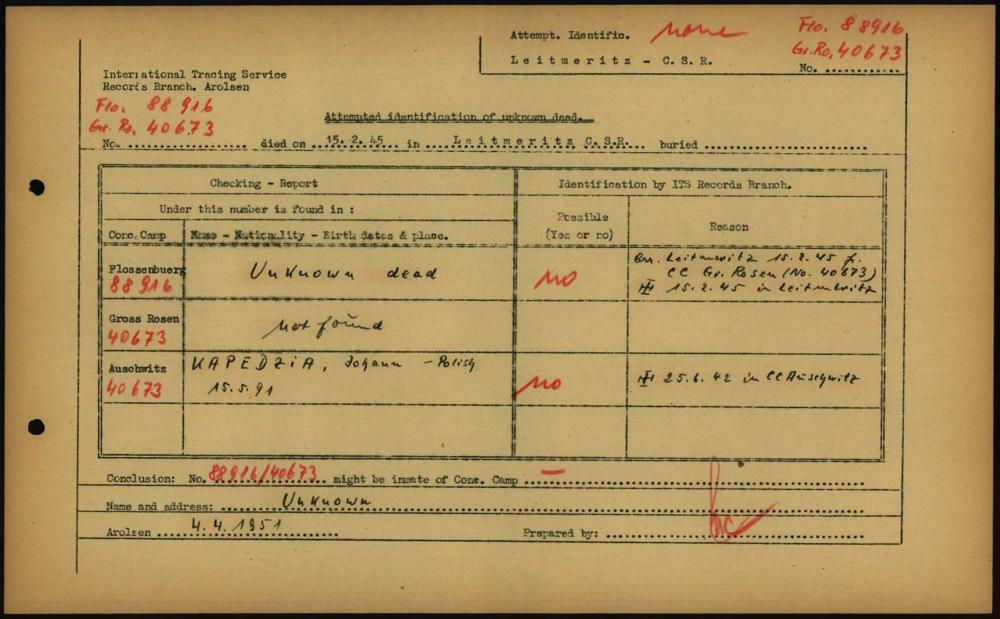 Attempt. Identific. none
Flo. 88916
Gr. Ro, 40673
Leitmeritz - C.S.R.
No. ............
International Tracing Service
Records Branch. Arolsen
Flo. 88916
Gr. Ro. 40673
Attempted identification of unknown dead.
No. ............ died on ...15.2.45... in ...Leitmeritz C.S.R. buried ............
Checking - Report
Identification by ITS Records Branch.
Under this number is found in :
Possible
(Yes or no)
Reason
Conc. Camp
Name - Nationality - Birth dates & place.
Flossenbuerg
88916
Unknown dead
no
Leitmeritz 15.2.45
CC Gr. Rosen (No. 40673)
15.2.45 in Leitmeritz
Gross Rosen
40673
not found
Auschwitz
40673
KAPEDZiA, Johann - Polish
15.5.91
no
25.6.42 in CC Auschwitz
Conclusion: No. 88916/40673 might be inmate of Conc. Camp ... — ............
Name and address: ...... Unknown ............
Arolsen ... 4.4.1951 ............ Prepared by: ............